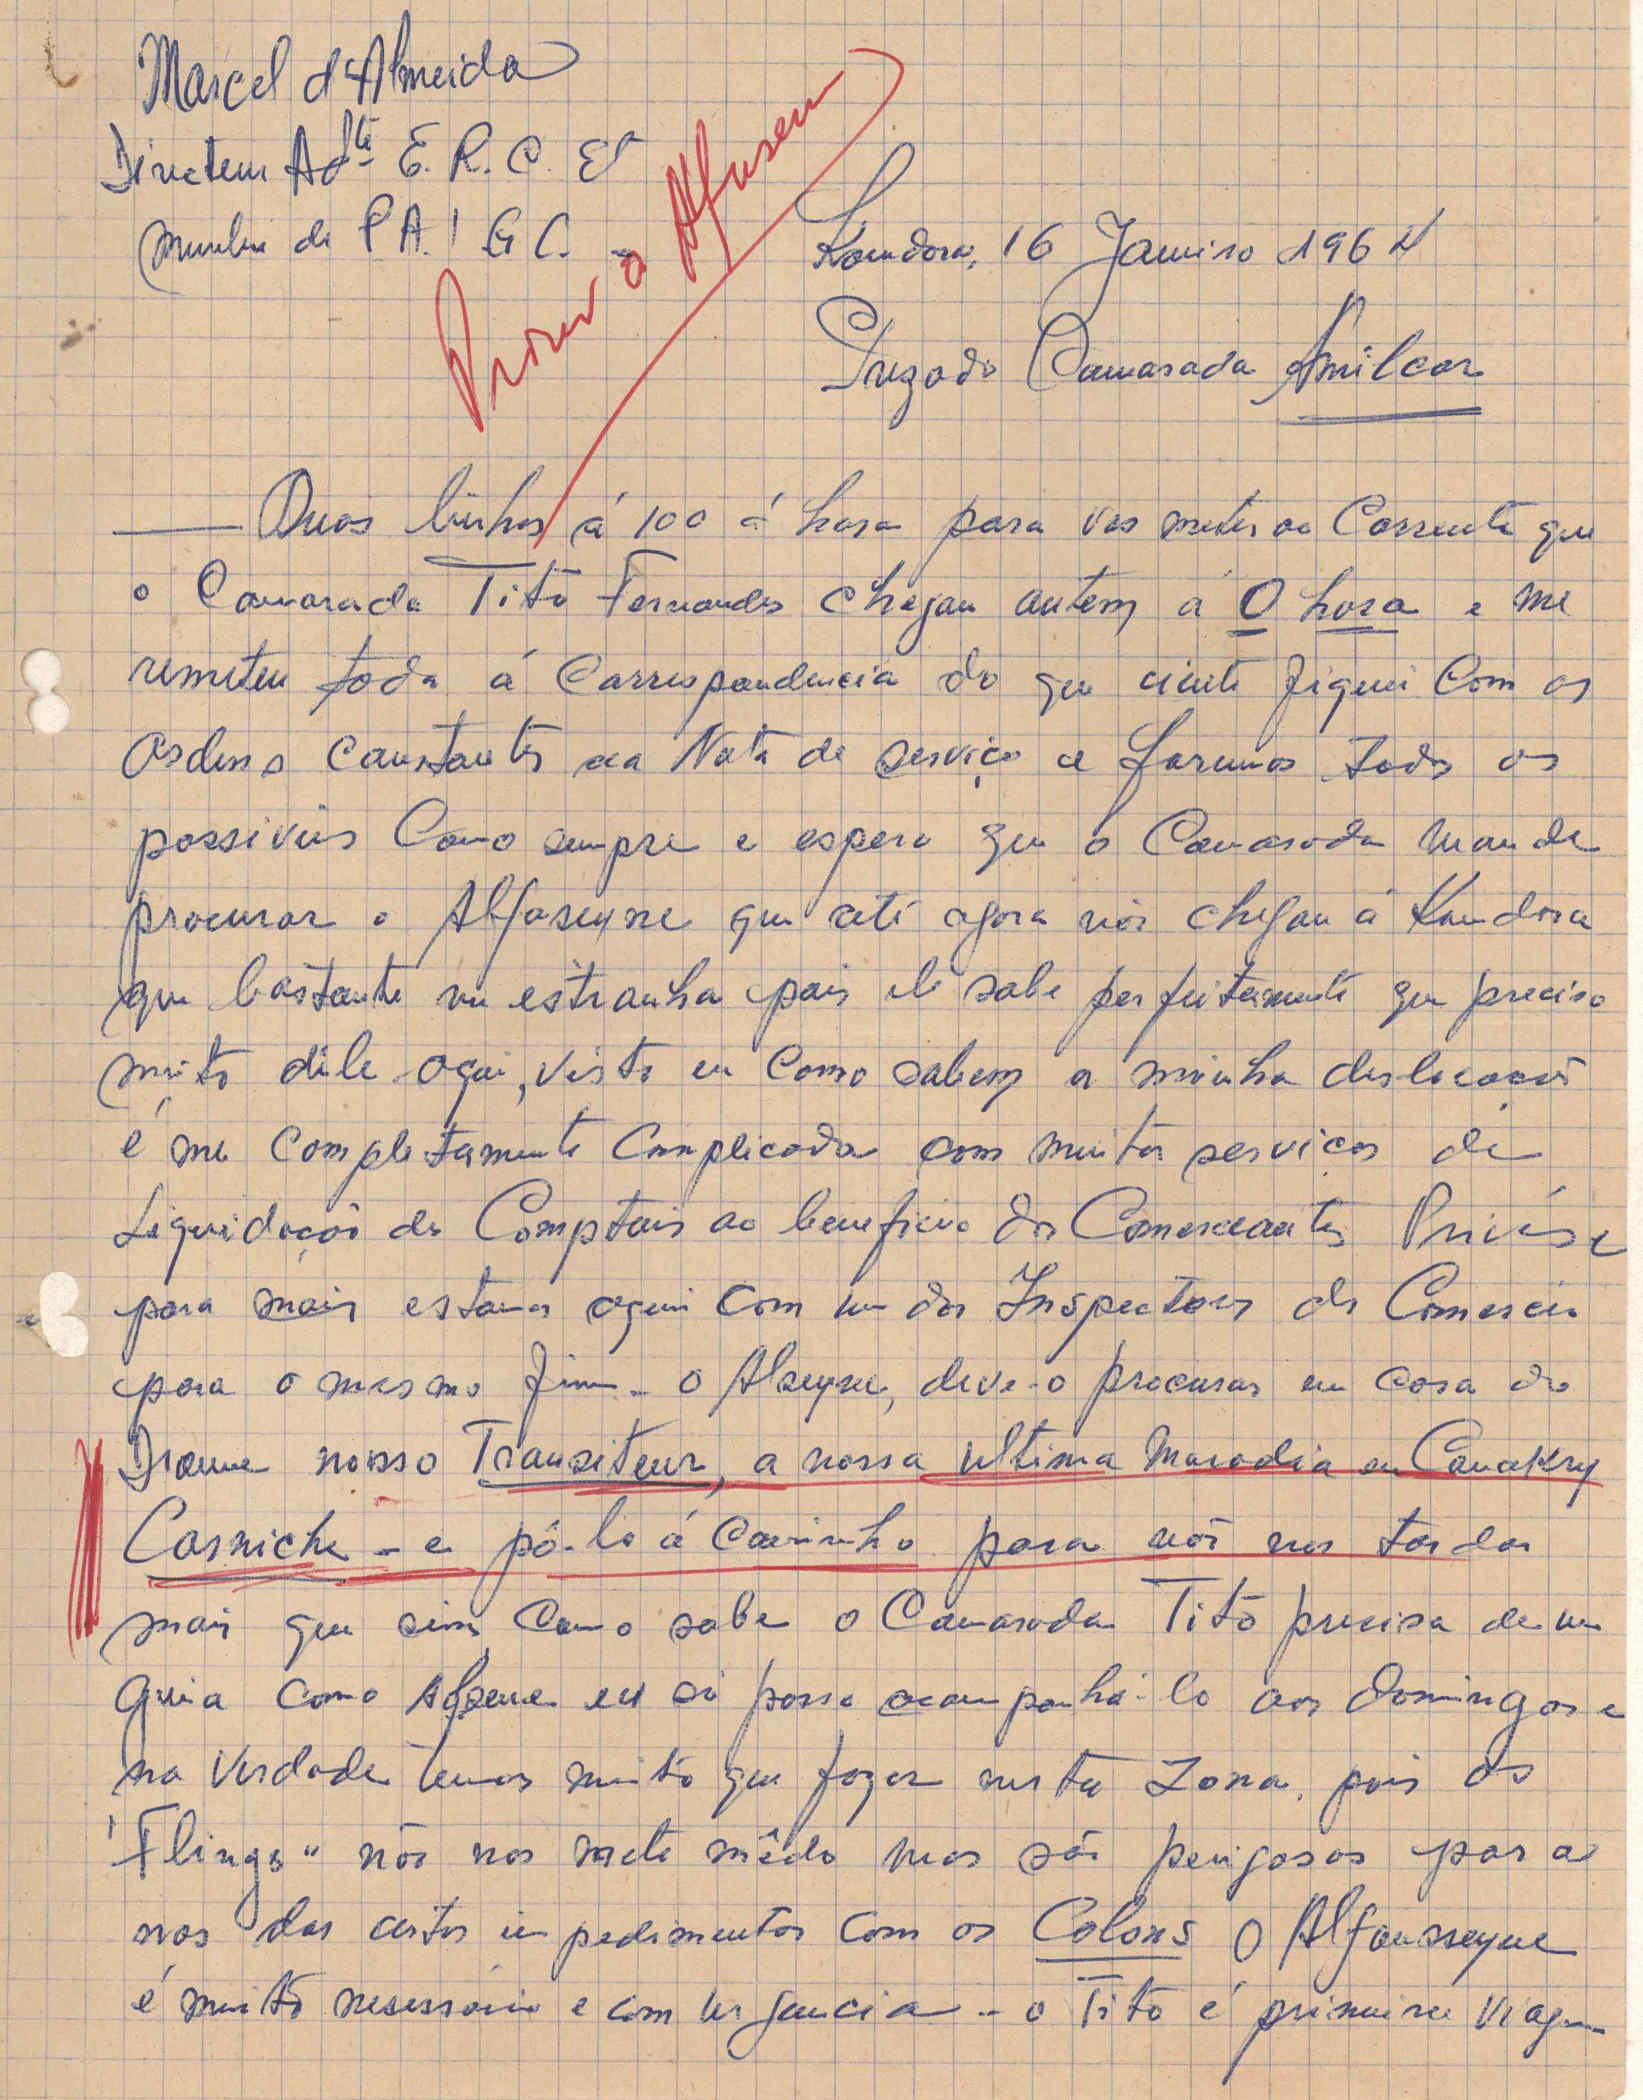 Marcel d'Almeida
Directeur Adte E. R. C. Et
membre du P.A.I.G.C.
Procurar o Afuseni
Koundara, 16 Janeiro 1964
Prezado Camarada Amilcar
Duas linhas á 100 á hora para vos meter ao Corrente que
o Camarada Tito Fernandes chegou antem á 0 hora e me
remeteu toda á Correspondencia do que ciente fiquei Com as
Ordens Constantes na Nota de serviço e faremos todos os
possiveis Como sempre e espero que o Camarada mande
procurar o Alfaseyne que até agora não chegou á Koundara
que bastante me estranha pois ele sabe perfeitamente que preciso
muito dele aqui, visto eu Como sabem a minha deslocação
é me completamente Complicada com muitos serviços de
Liquidação de Comptois ao beneficio dos Comerciantes Privés e
para mais estamos aqui Com um dos Inspectores do Comercio
para o mesmo fim - o Alseyne, deve-o procurar em casa do
Drame nosso Transiteur, a nossa ultima Maradia em Conakry
Corniche - e pô-lo á Caminho para não nos tardar
mais que sim Como sabe o Camarada Tito precisa de um
Guia Como Afsene eu só posso acompanhá-lo aos domingos e
na Verdade temos muito que fazer nesta Zona, pois os
"Flings" não nos mete mêdo mas são perigosos para
nos dar certos impedimentos Com os Colons O Alfousseyne
é muito nesessário e com urgencia - o Tito é primeira viagem